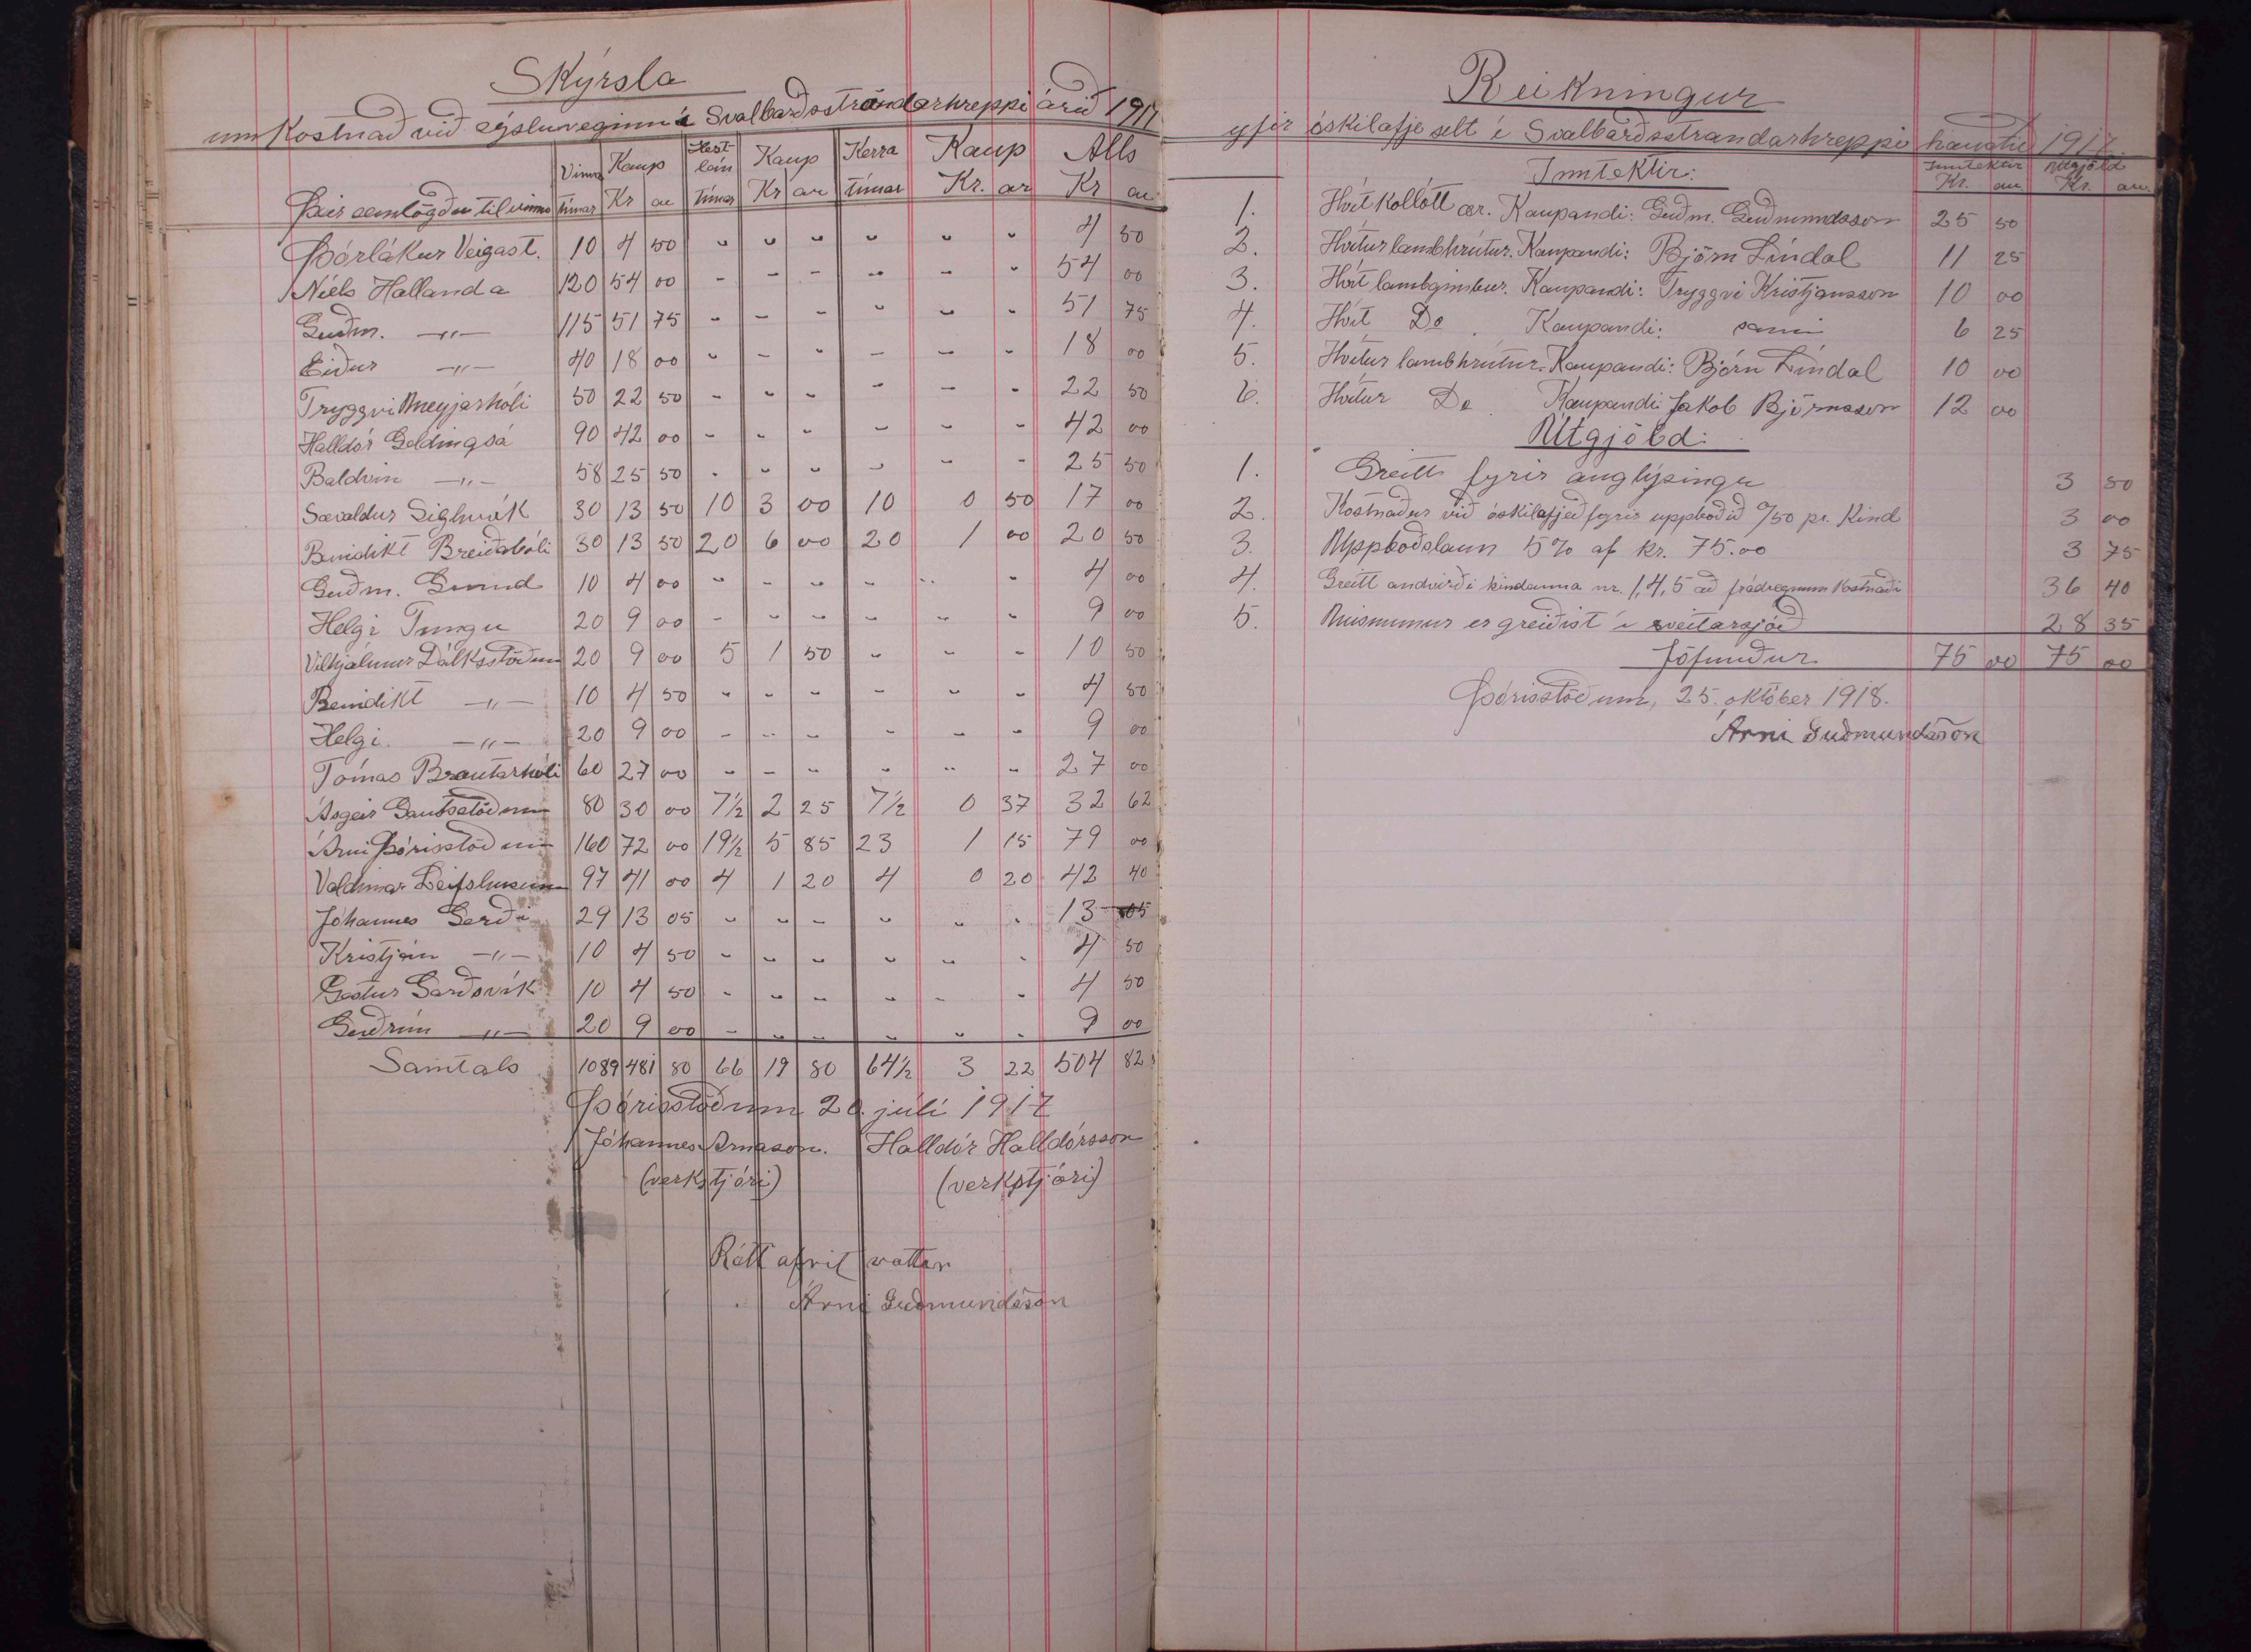 Skýrsla
um kostnað við sýsluveginn í Svalbarðsstrandarhreppi árið 1917
Vinna Kaup Hest- lán Kaup Kerra Kaup Alls
Þeir sem lögðu til vinnu tímar Kr au tímar Kr au tímar Kr. ar Kr au
Þórlákur Veigast. 10 4 50 " " " " " " 4 50
Níels Hallanda 120 54 00 - - - - - - 54 00
Guðm. —"— 115 51 75 - - - - - - 51 75
Eiður —"— 40 18 00 - - - - - - 18 00
Tryggvi Meyjarhóli 50 22 50 - - - - - - 22 50
Halldór Geldingsá 90 42 00 - - - - - - 42 00
Baldvin —"— 58 25 50 - - - - - - 25 50
Sævaldur Sigluvík 30 13 50 10 3 00 10 0 50 17 00
Benidikt Breiðabóli 30 13 50 20 6 00 20 1 00 20 50
Guðm. Grund 10 4 00 - - - - - - 4 00
Helgi Tungu 20 9 00 - - - - - - 9 00
Vilhjálmur Dálksstöðum 20 9 00 5 1 50 - - - 10 50
Benidikt —"— 10 4 50 - - - - - - 4 50
Helgi. —"— 20 9 00 - - - - - - 9 00
Tómas Brautarhóli 60 27 00 - - - - - - 27 00
Ásgeir Gautsstöðum 80 30 00 7½ 2 25 7½ 0 37 32 62
Árni Þórisstöðum 160 72 00 19½ 5 85 23 1 15 79 00
Valdimar Leifshúsum 97 41 00 4 1 20 4 0 20 42 40
Jóhannes Gerði 29 13 05 - - - - - - 13 05
Kristján —"— 10 4 50 - - - - - - 4 50
Gestur Garðsvík 10 4 50 - - - - - - 4 50
Guðrún —"— 20 9 00 - - - - - - 9 00
Samtals 1089 481 80 66 19 80 64½ 3 22 504 82
Þórisstöðum 20. júlí 1917
Jóhannes Árnason. Halldór Halldórsson
(verkstjóri) (verkstjóri)
Rétt afrit vottar
Árni Guðmundsson
Reikningur
yfir óskilafje selt í Svalbarðsstrandarhreppi haustið 1917
Inntektir: Inntektir Útgjöld
Kr. au Kr. au.
1. Hvít kollótt ær. Kaupandi: Guðm. Guðmundsson 25 50
2. Hvítur lambhrútur. Kaupandi: Björn Líndal 11 25
3. Hvít lambgimbur. Kaupandi: Tryggvi Kristjánsson 10 00
4. Hvít Do. Kaupandi: sami 6 25
5. Hvítur lambhrútur. Kaupandi: Björn Líndal 10 00
6. Hvítur Do. Kaupandi Jakob Björnsson 12 00
Útgjöld:
1. Greitt fyrir auglýsingu 3 50
2. Kostnaður við óskilafjeð fyrir uppboðið 0/50 pr. Kind 3 00
3. Uppboðslaun 5% af kr. 75.00 3 75
4. Greitt andvirði kindanna nr. 1,4,5 að frádregnum kostnaði 36 40
5. Mismunur er greiðist í sveitarsjóð 28 35
Jöfnuður 75 00 75 00
Þórisstöðum, 25. október 1918.
Árni Guðmundsson